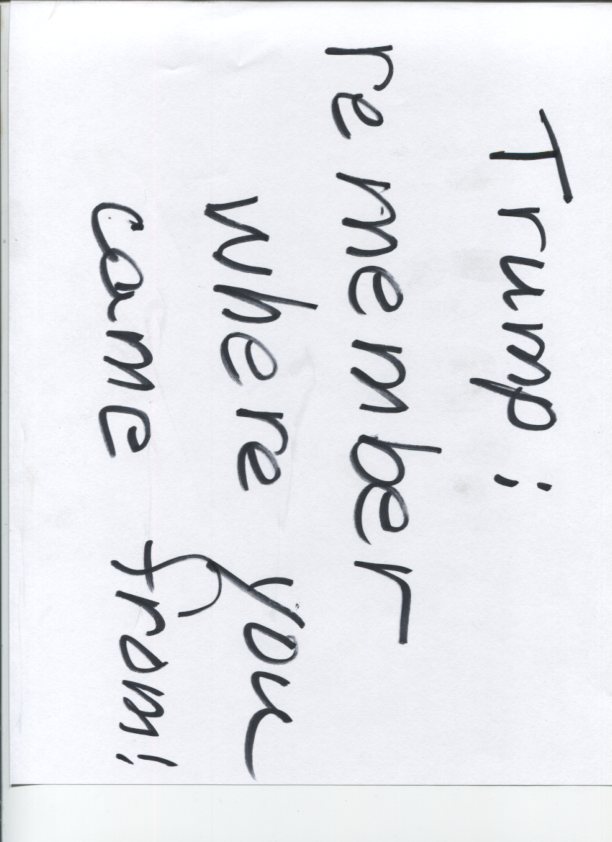 Trump:
remember
where you
came from!